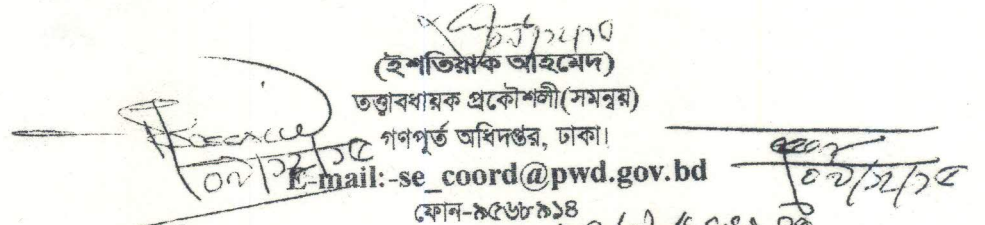 (ইশতিয়াক আহমেদ)
তত্ত্বাবধায়ক প্রকৌশলী(সমন্বয়)
গণপূর্ত অধিদপ্তর, ঢাকা।
E-mail:-se_coord@pwd.gov.bd
ফোন-৯৫৬৮৯১৪